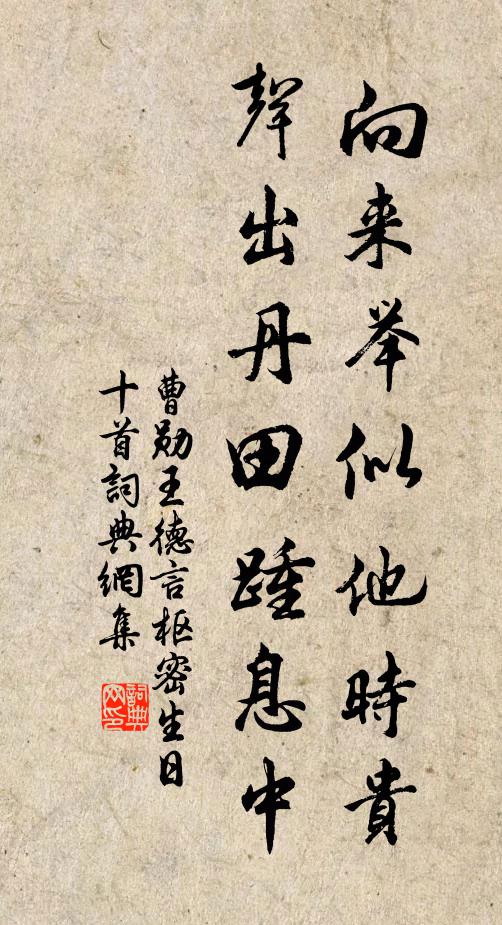 向来举似他時貴
聲出丹田踵息中
曹勋王德言枢密生日
十首詞典網集
詞典网印